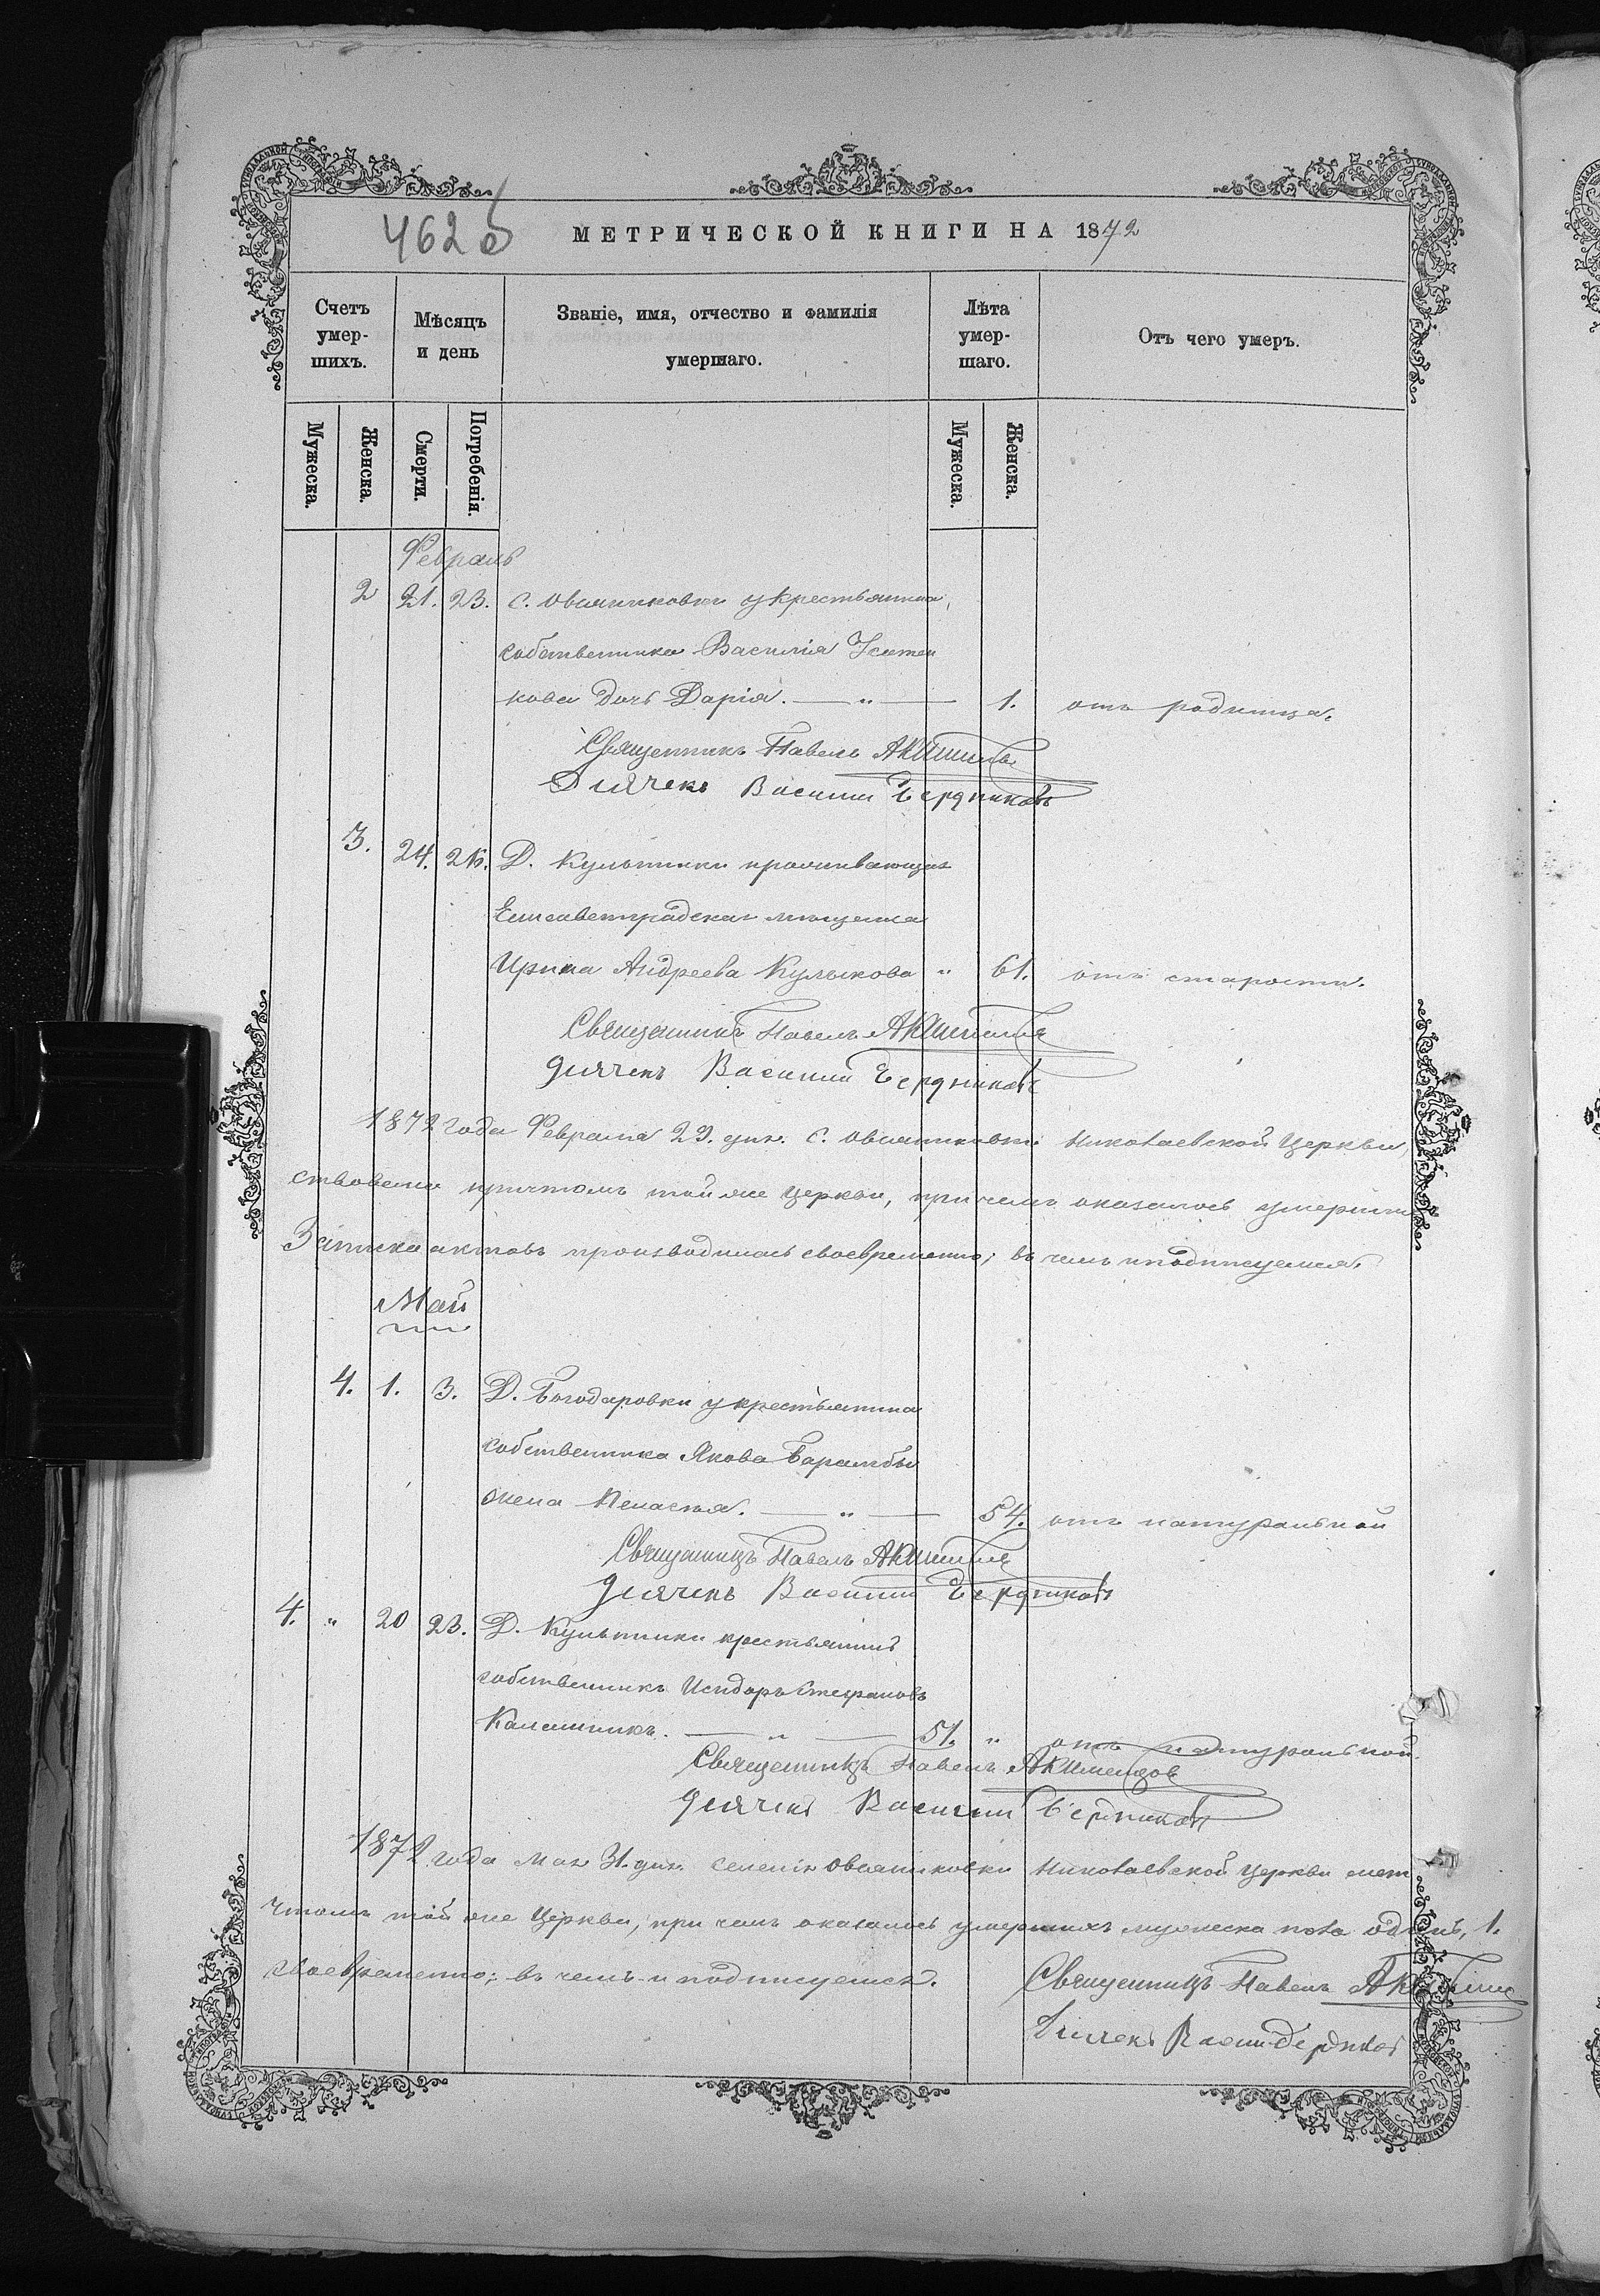 462 об
МЕТРИЧЕСКОЙ КНИГИ НА 1872
Счетъ умер-шихъ.
Мѣсяцъ и день
Званіе, имя, отчество и фамилія умершаго.
Лѣта умер-шаго.
Отъ чего умеръ.
Мужеска. Женска. Смерти. Погребенія. Мужеска. Женска.
Февраль
2 21. 23. С. Овсяниковки у крестьянина
собственника Василія
кова дочь Дарія. — „ — 1. отъ родимца.
Священникъ Павелъ
Дячекъ Василий Бердниковъ
3. 24. 26. Д. Культики проживающая
Елисаветградская мѣщанка
Ирина Андреева Куликова „ 61. отъ старости.
Священникъ Павелъ
Дячекъ Василий Бердниковъ
1872 года Февраля 29. дня. С. Овсяниковки Николаевской Церкви,
ствовани причтомъ той же Церкви, при чемъ оказалось умершихъ
Записка актовъ производилась своевременно; въ чемъ и подписуемся.
Май
4. 1. 3. Д. Богодаровки у крестьянина
собственника Якова
жена Пелагия. — „ — 54. отъ натуральной
Священникъ Павелъ
Дячекъ Василий Бердниковъ
4. „ 20 23. Д. Культики крестьянинъ
собственникъ Исидоръ Стефановъ
Калашникъ. — „ — 51. „ отъ натуральной.
Священникъ Павелъ
Дячекъ Василий Бердниковъ
1872 года Мая 31. дня. селенія Овсяниковки Николаевской Церкви мет
чтомъ той же Церкви, при чемъ оказалось умершихъ мужеска пола одинъ, 1.
своевременно; въ чемъ и подписуемся. Священникъ Павелъ
Дячекъ Василий Бердниковъ